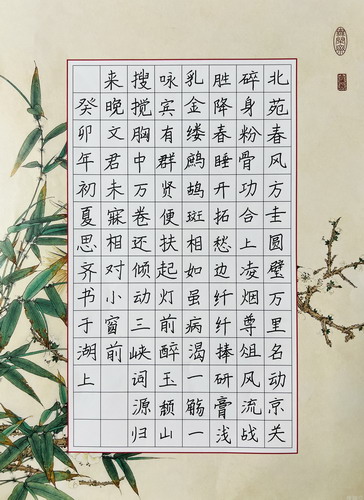 北苑春风方圭圆璧万里名动京关
碎身粉骨功合上凌烟尊俎风流战
胜降春睡开拓愁边纤纤捧研膏浅
乳金缕鹧鸪斑相如虽病渴一觞一
咏宾有群贤便扶起灯前醉玉颓山
搜搅胸中万卷还倾动三峡词源归
来晚文君未寐相对小窗前
癸卯年初夏思齐书于湖上